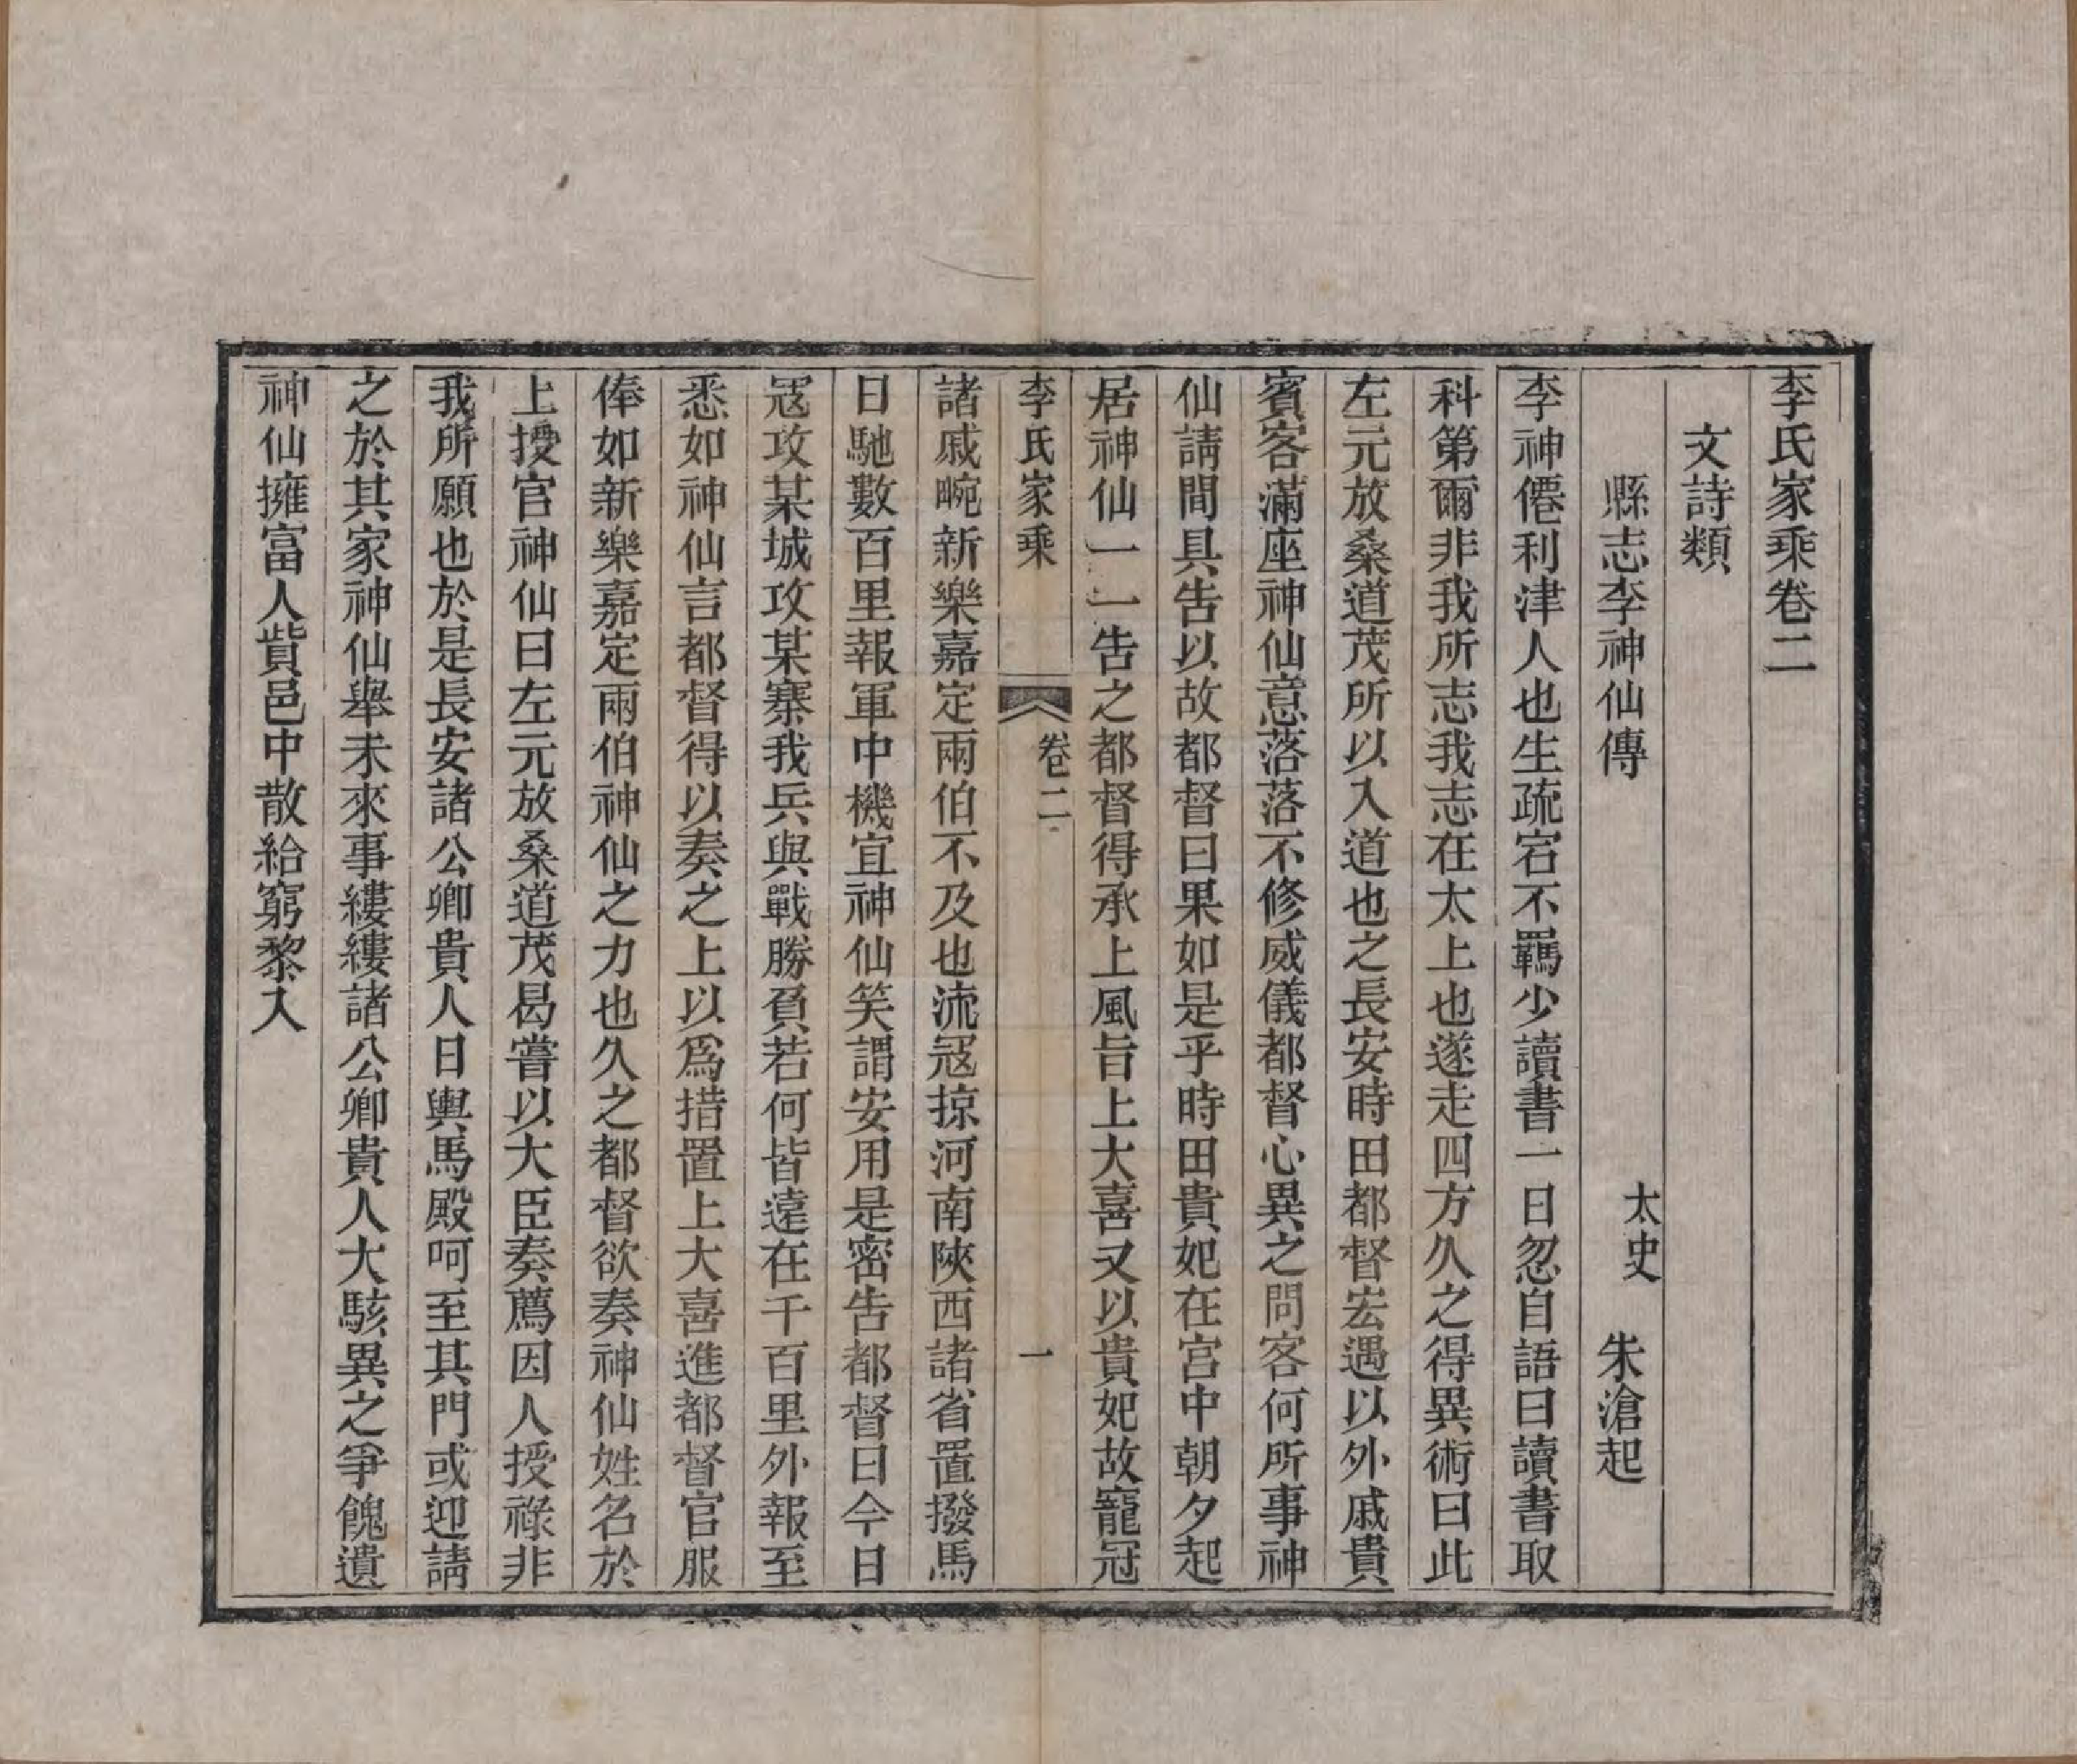 李氏家乘卷二
文詩類
縣志李神仙傳
太史 朱滄起
李神僊利津人也生疏宕不羈少讀書一日忽自語曰讀書取
科第爾非我所志我志在太上也遂走四方久之得異術曰此
左元放桑道茂所以入道也之長安時田都督宏遇以外戚貴
賓客滿座神仙意落落不修威儀都督心異之問客何所事神
仙請間具告以故都督曰果如是乎時田貴妃在宮中朝夕起
居神仙一一告之都督得承上風旨上大喜又以貴妃故寵冠
李氏家乘 卷二 一
諸戚畹新樂嘉定兩伯不及也流寇掠河南陝西諸省置撥馬
日馳數百里報軍中機宜神仙笑謂安用是密告都督曰今日
寇攻某城攻某寨我兵與戰勝負若何皆遠在千百里外報至
悉如神仙言都督得以奏之上以爲措置上大喜進都督官服
俸如新樂嘉定兩伯神仙之力也久之都督欲奏神仙姓名於
上授官神仙曰左元放桑道茂曷嘗以大臣奏薦因人授祿非
我所願也於是長安諸公卿貴人日輿馬殿呵至其門或迎請
之於其家神仙舉未來事縷縷諸公卿貴人大駭異之爭餽遺
神仙擁富人貲邑中散給窮黎入